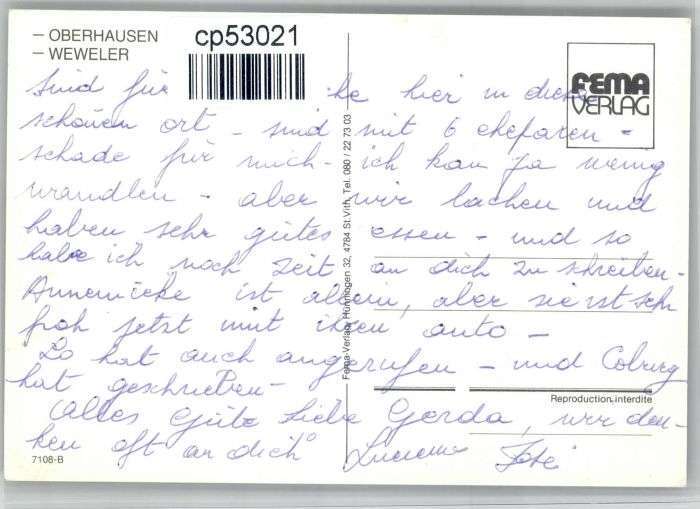 – OBERHAUSEN
– WEWELER
cp53021
FEMA
VERLAG
Sind für he hier in diese
schönen ort – sind mit 6 eheparen –
schade für mich – ich kan ja wenig
wandlen – aber wir lachen und
haben sehr gutes essen – und so
habe ich noch Zeit an dich zu schreiben –
Annemieke ist allein, aber sie ist sehr
froh jetzt mit ihren auto –
Lo hat auch angerufen – und Coburg
hat geschrieben –
Alles Gute Liebe Gerda, wir den-
ken oft an dich
Lucienne José
Fema-Verlag, Hünningen 32, 4784 St.Vith, Tel. 080 / 22 73 03
Reproduction interdite
7108-B